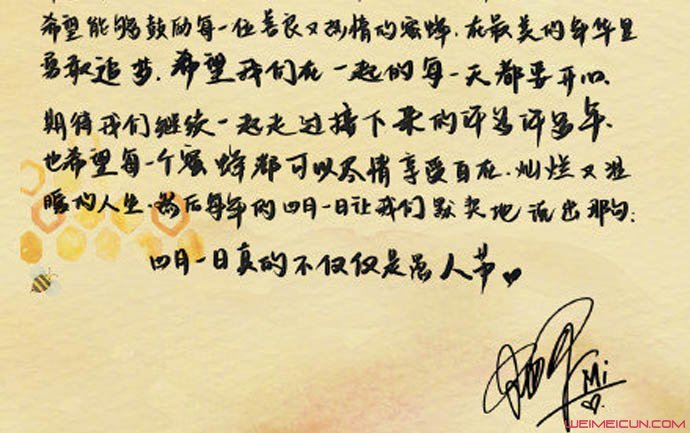 希望能够鼓励每一位善良又热情的蜜蜂,在最美的年华里
勇敢追梦。希望我们在一起的每一天都要开心。
期待我们继续一起走过接下来的许多许多年.
也希望每一个蜜蜂都可以尽情享受自在.灿烂又温
暖的人生.然后每年的四月一日让我们默契地说出那句:
四月一日真的不仅仅是愚人节
Mi
WEIMEICUN.COM